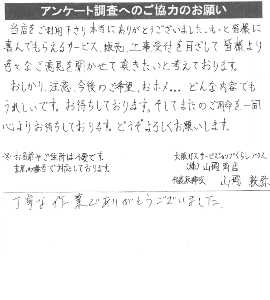 アンケート調査へのご協力のお願い
当店をご利用下さり本当にありがとうございました。もっと皆様に
喜んでもらえるサービス、販売、工事受付を目ざして皆様より
色々なご意見を聞かせて頂きたいと考えております。
おしかり、注意、今後のご希望、おホメ... どんな内容でも
うれしいです。お待ちしております。そしてまたのご用命を一同
心よりお待ちしております。どうぞよろしくお願いします。
※お名前やご住所は不要です。
対応しております。
大阪ガスサービスショップ
(株)山岡商店
山岡
丁寧な作業でありがとうございました